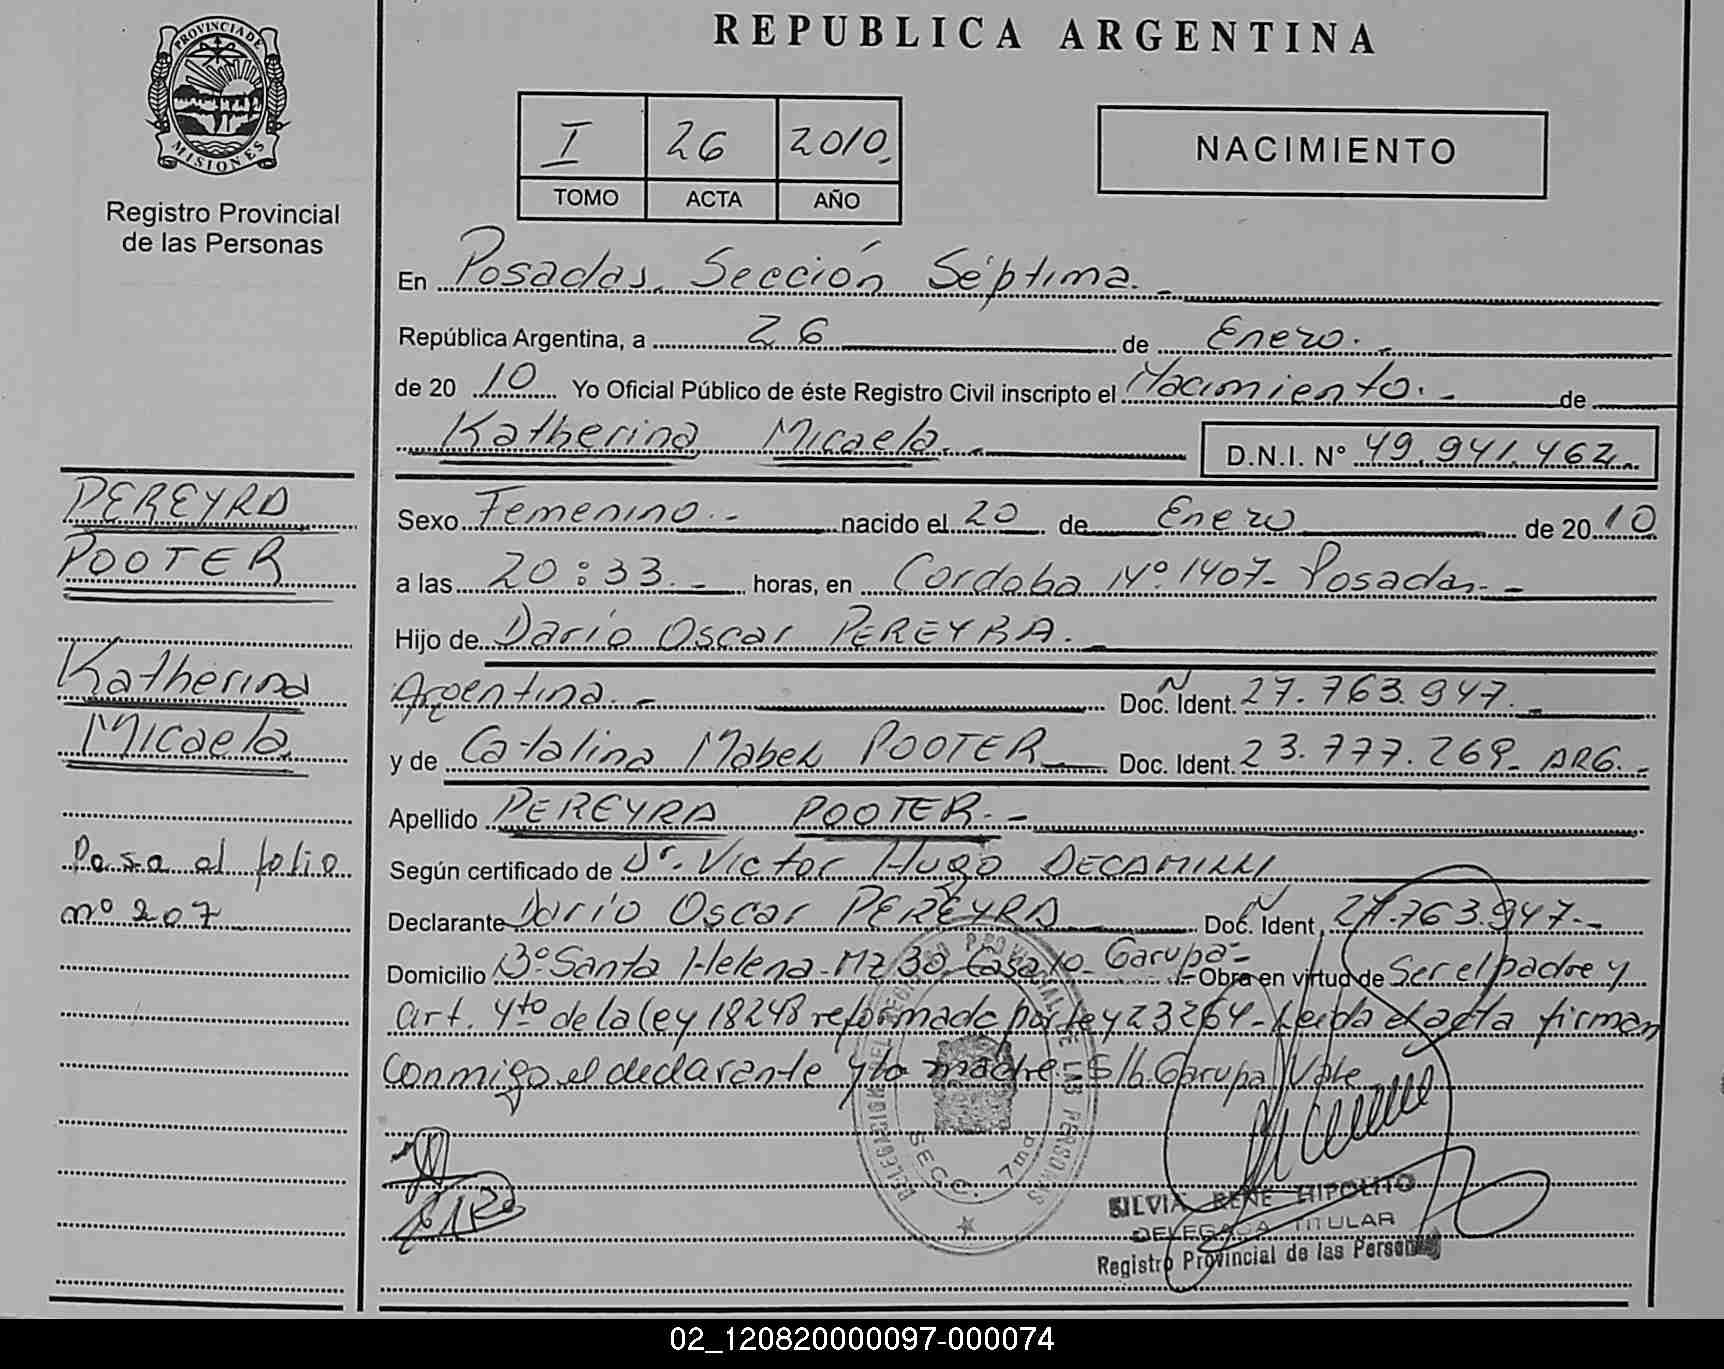 REPUBLICA ARGENTINA
PROVINCIA DE
MISIONES
Registro Provincial
de las Personas
I 26 2010.
TOMO ACTA AÑO
NACIMIENTO
En Posadas. Sección Séptima.-
República Argentina, a 26 de Enero.-
de 20 10 Yo Oficial Público de éste Registro Civil inscripto el Nacimiento.- de
Katherina Micaela.- D.N.I. Nº 49.941.462.
PEREYRA
POOTER
Katherina
Micaela
Pasa al folio
nº 207
Sexo Femenino.- nacido el 20 de Enero de 20 10
a las 20:33.- horas, en Cordoba Nº 1407- Posadas.-
Hijo de Darío Oscar PEREYRA.
Argentina.- Doc. Ident. 27.763.947.
y de Catalina Mabel POOTER Doc. Ident. 23.777.269- ARG.-
Apellido PEREYRA POOTER.-
Según certificado de Dr. Victor Hugo DECAMILLI
Declarante Darío Oscar PEREYRA Doc. Ident. 27.763.947.-
Domicilio Bº Santa Helena- Mz 30 Casa 10- Garupa- Obra en virtud de Ser el padre y
art. 4to de la ley 18248 reformado por ley 23264- Leida el acta firman
conmigo el declarante y la madre S/b. Garupa Vale
DELEGACION DEL REGISTRO PROVINCIAL DE LAS PERSONAS
SECC. 7ma
SILVIA RENE HIPOLITO
DELEGADA TITULAR
Registro Provincial de las Personas
02_120820000097-000074